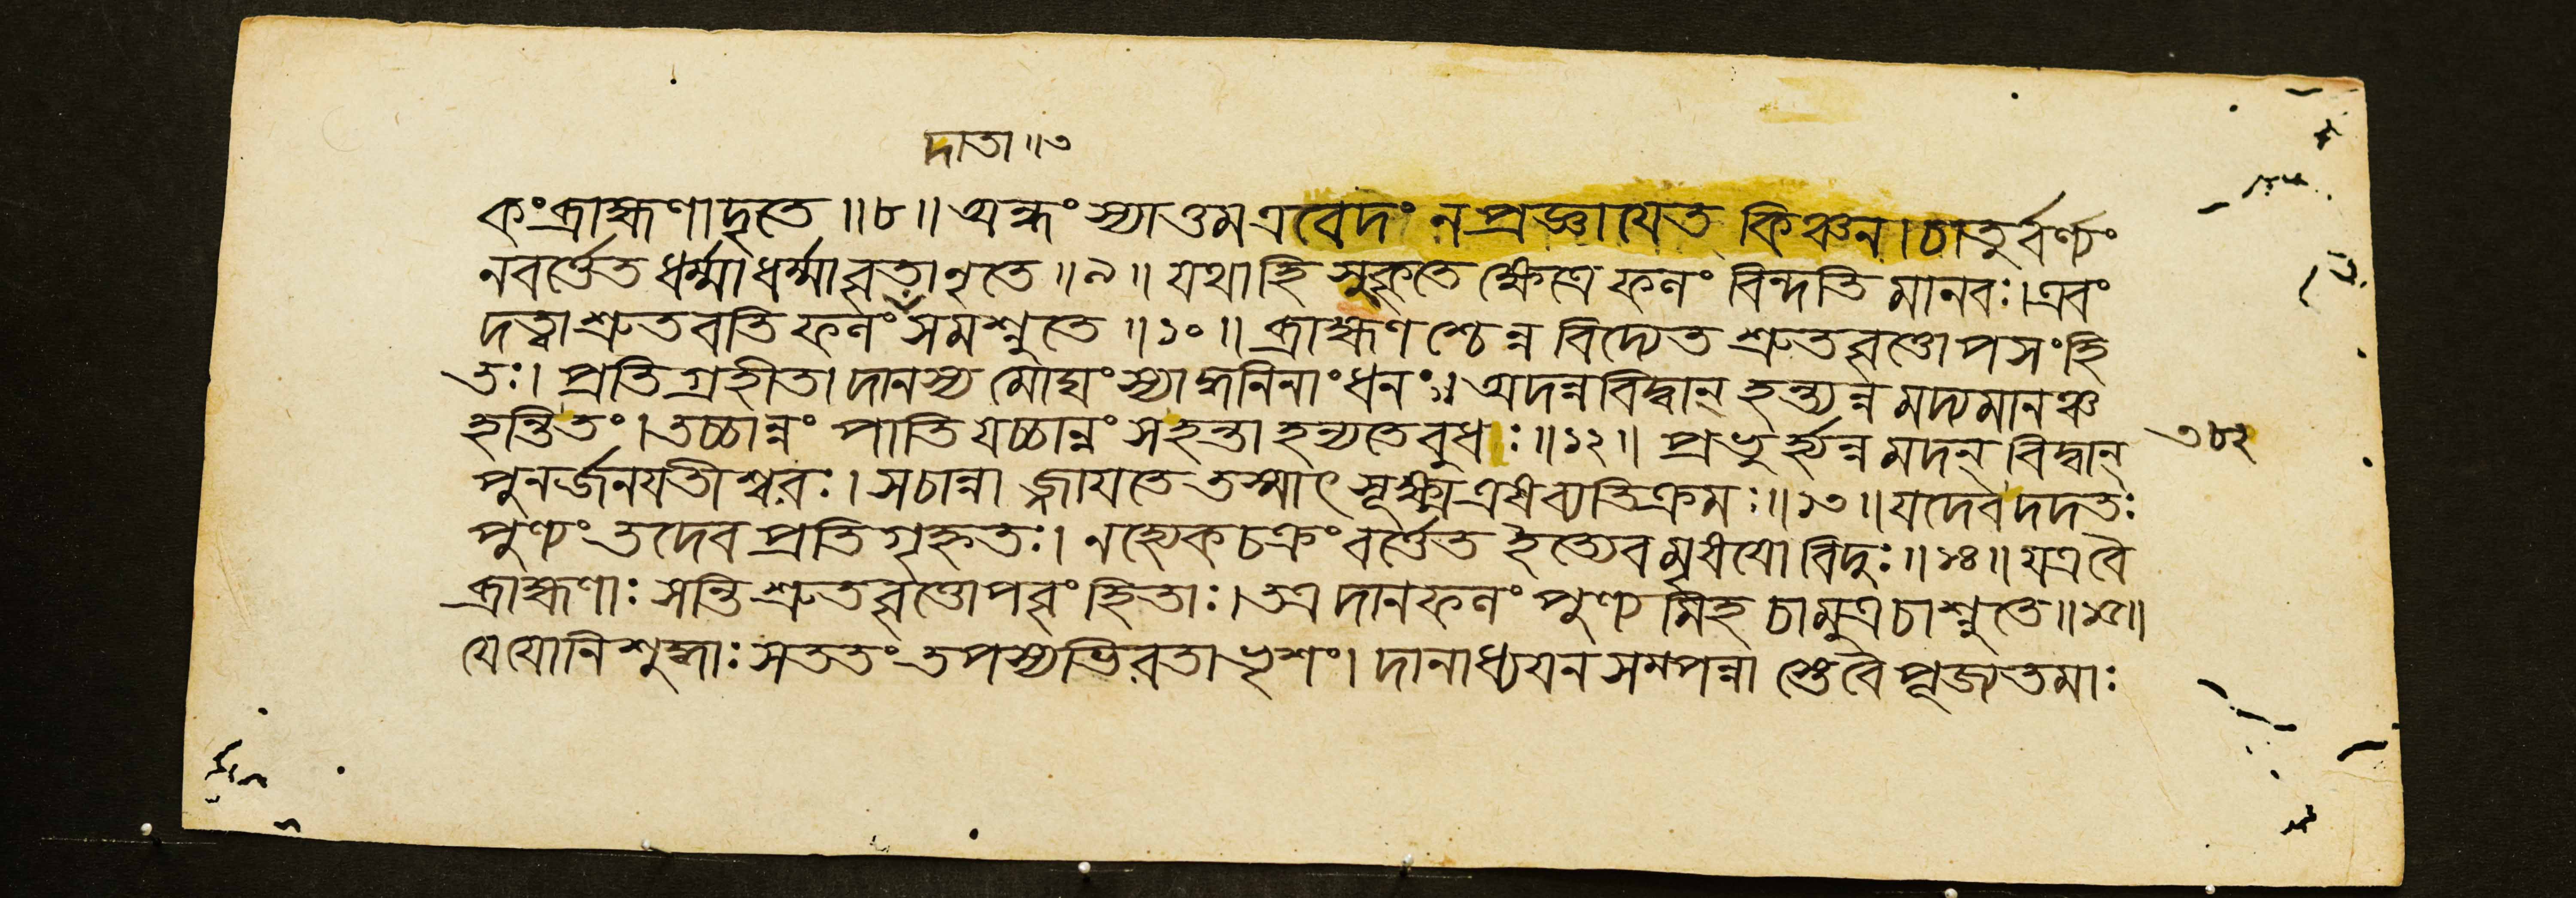 দাতা॥৩
কংব্রাহ্মণাদৃতে॥৮॥অন্ধং স্যাত্তমএবেদং নপ্রজ্ঞাযেত কিঞ্চন।চাতুর্বর্ণ্যং
নবর্ত্তেত ধর্ম্মাধর্ম্মাবৃতানৃতে॥৯॥যথাহি সুকৃতে ক্ষেত্রে ফলং বিন্দতি মানবঃ।এবং
দত্বাশ্রুতবতি ফলং সমশ্নুতে॥১০॥ব্রাহ্মণশ্চেন্ন বিদ্যেত শ্রুতবৃত্তোপসংহি
তঃ। প্রতিগ্রহীতা দানস্য মোঘং স্যাদ্ধনিনাং ধনং॥ অদন্নবিদ্বান্ হন্ত্যন্ন মদ্যমানঞ্চ
হন্তিতং।তচ্চান্নং পাতি যচ্চান্নং সহন্তা হন্যতেবুধঃ॥১২॥প্রভুর্হ্যন্ন মদন্ বিদ্বান্ ৩৮২
পুনর্জনযতীশ্বরঃ। সচান্না জ্জাযতে তস্মাৎ সূক্ষ্মএষব্যতিক্রমঃ॥১৩॥যদেবদদতঃ
পুণ্যং তদেব প্রতিগৃহ্নতঃ। নহ্যেকচক্রং বর্ত্তেত ইত্যেবমৃষযো বিদুঃ॥১৪॥যত্রবৈ
ব্রাহ্মণাঃ সন্তি শ্রুতবৃত্তোপবৃংহিতাঃ।তত্র দানফলং পুণ্যমিহ চামুত্রচাশ্নুতে॥১৫॥
যেযোনিশুদ্ধাঃ সততং তপস্যভিরতাভৃশং। দানাধ্যযনসম্পন্না স্তেবৈ পূজ্যতমাঃ